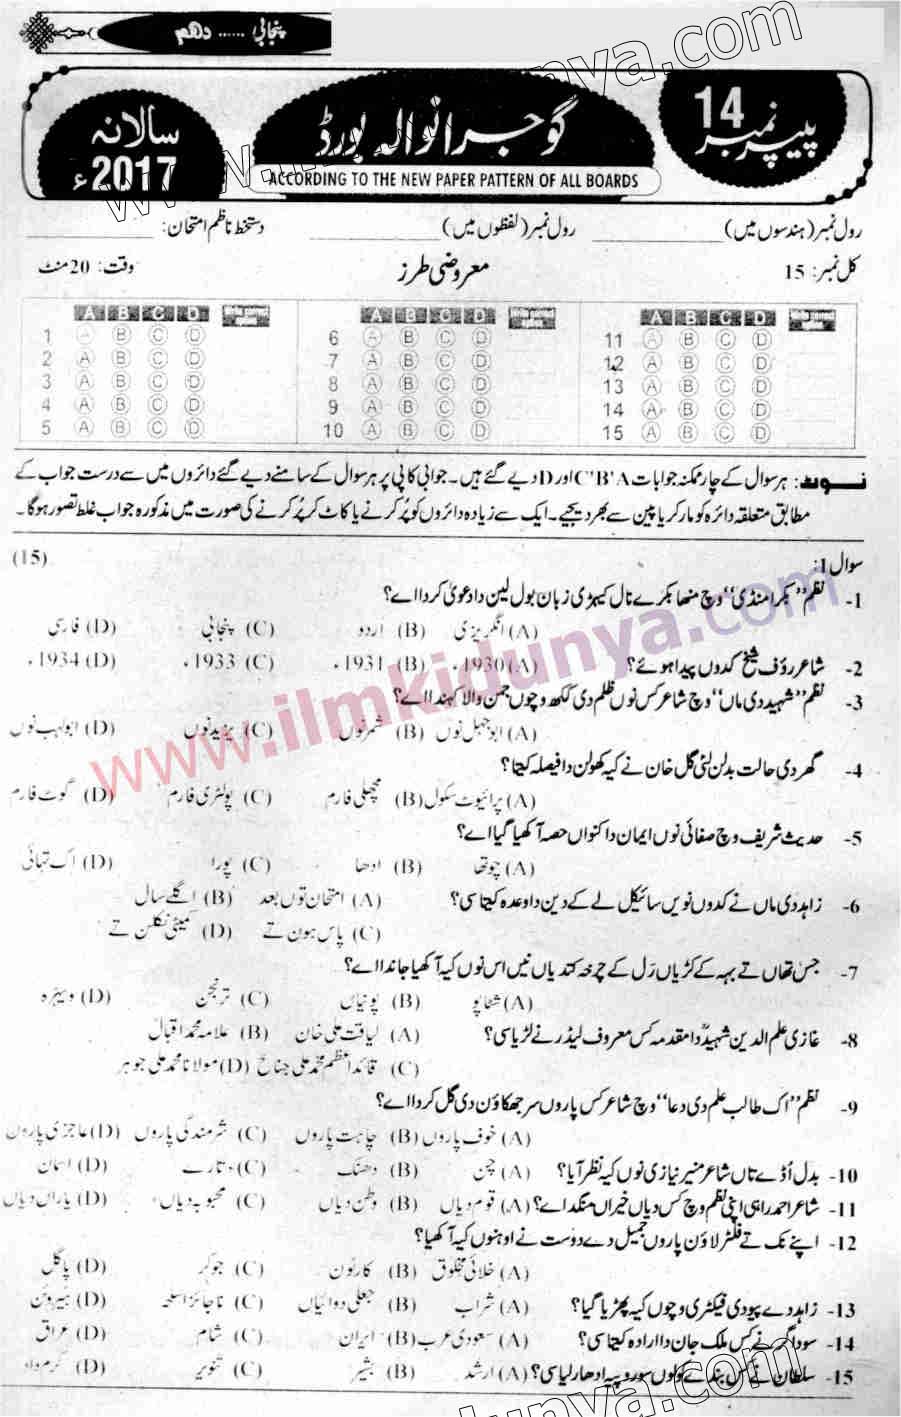 پنجابی ...... دہم
پیپر نمبر 14
گوجرانوالہ بورڈ
ACCORDING TO THE NEW PAPER PATTERN OF ALL BOARDS
سالانہ 2017ء
رول نمبر (ہندسوں میں) ____________ رول نمبر (لفظوں میں) ____________ دستخط ناظم امتحان: ____________
کل نمبر: 15 معروضی طرز وقت: 20 منٹ
A B C D Write correct option A B C D Write correct option A B C D Write correct option
1 A B C D 6 A B C D 11 A B C D
2 A B C D 7 A B C D 12 A B C D
3 A B C D 8 A B C D 13 A B C D
4 A B C D 9 A B C D 14 A B C D
5 A B C D 10 A B C D 15 A B C D
نوٹ: ہر سوال کے چار ممکنہ جوابات A'B'C اور D دیے گئے ہیں۔ جوابی کاپی پر ہر سوال کے سامنے دیے گئے دائروں میں سے درست جواب کے
مطابق متعلقہ دائرہ کو مارکر یا پین سے بھر دیجیے۔ ایک سے زیادہ دائروں کو پُر کرنے یا کاٹ کر پُر کرنے کی صورت میں مذکورہ جواب غلط تصور ہوگا۔
سوال 1: (15)
1- نظم ’’بکرا منڈی‘‘ وچ منھا بکرے نال کیہڑی زبان بول لین دا دعویٰ کردا اے؟
(A) انگریزی (B) اردو (C) پنجابی (D) فارسی
2- شاعر رؤف شیخ کدوں پیدا ہوئے؟ (A) 1930ء (B) 1931ء (C) 1933ء (D) 1934ء
3- نظم ’’شہید دی ماں‘‘ وچ شاعر کس نوں ظلم دی ککھ وچوں جمن والا کہندا اے؟
(A) ابوجہل نوں (B) شمر نوں (C) یزید نوں (D) ابولہب نوں
4- گھر دی حالت بدلن لئی گل خان نے کیہ کھولن دا فیصلہ کیتا؟
(A) پرائیوٹ سکول (B) مچھلی فارم (C) پولٹری فارم (D) گوٹ فارم
5- حدیث شریف وچ صفائی نوں ایمان دا کنواں حصہ آکھیا گیا اے؟
(A) چوتھا (B) ادھا (C) پورا (D) اک تہائی
6- زاہد دی ماں نے کدوں نویں سائیکل لے کے دین دا وعدہ کیتا سی؟ (A) امتحان توں بعد (B) اگلے سال
(C) پاس ہون تے (D) کمیٹی نکلن تے
7- جس تھاں تے بہہ کے کڑیاں رَل کے چرخہ کتدیاں نیں اس نوں کیہ آکھیا جاندا اے؟
(A) شٹاپو (B) پونیاں (C) ترنجن (D) ویہڑہ
8- غازی علم الدین شہیدؒ دا مقدمہ کس معروف لیڈر نے لڑیا سی؟ (A) لیاقت علی خان (B) علامہ محمد اقبال
(C) قائداعظم محمد علی جناح (D) مولانا محمد علی جوہر
9- نظم ’’اک طالب علم دی دعا‘‘ وچ شاعر کس پاروں سر جھکاؤن دی گل کردا اے؟
(A) خوف پاروں (B) چاہت پاروں (C) شرمندگی پاروں (D) عاجزی پاروں
10- بدل اُڈے تاں شاعر منیر نیازی نوں کیہ نظر آیا؟ (A) چن (B) دھنک (C) تارے (D) اسمان
11- شاعر احمد راہی اپنی نظم وچ کس دیاں خیراں منگدا اے؟ (A) قوم دیاں (B) وطن دیاں (C) محبوبہ دیاں (D) یاراں دیاں
12- اپنے نک تے فلٹر لاؤن پاروں جمیل دے دوست نے اوہنوں کیہ آکھیا؟
(A) خلائی مخلوق (B) کارٹون (C) جوکر (D) پاگل
13- زاہد دے پیو دی فیکٹری وچوں کیہ پھڑیا گیا؟ (A) شراب (B) جعلی دوائیاں (C) ناجائز اسلحہ (D) ہیروئن
14- سوداگر نے کس ملک جان دا ارادہ کیتا سی؟ (A) سعودی عرب (B) ایران (C) شام (D) عراق
15- سلطان نے کس بندے کولوں سو روپیہ ادھار لیا سی؟ (A) ارشد (B) بشیر (C) تنویر (D) کرم داد
www.ilmkidunya.com